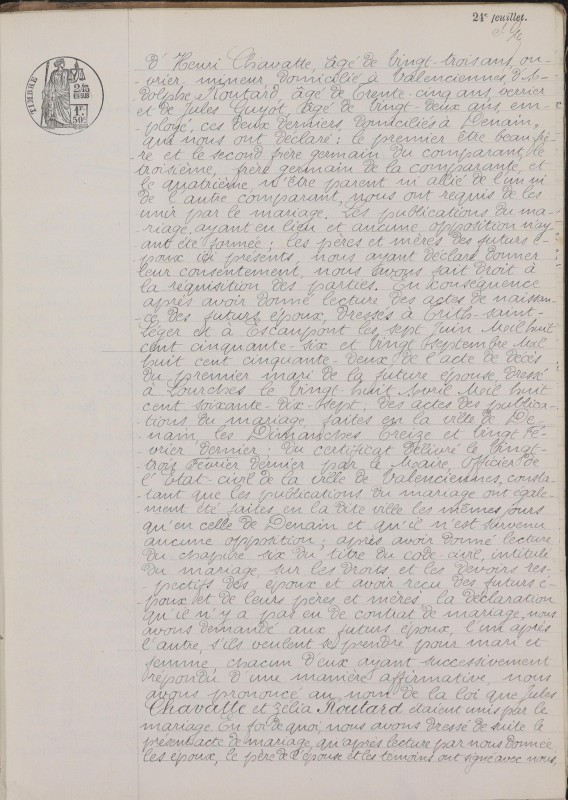 24e feuillet.
TIMBRE
1F.
50c
d'Henri Chavatte, âgé de vingt-trois ans, ou-
vrier mineur, domicilié à Valenciennes, d'A-
dolphe Routard, âgé de trente-cinq ans, verrier
et de Jules Guyot, âgé de vingt-deux ans, em-
ployé, ces deux derniers, domiciliés à Denain,
qui nous ont déclaré: le premier être beau-frè-
re et le second frère germain du comparant, le
troisième, frère germain de la comparante, et
le quatrième, n'être parent ni allié de l'un ni
de l'autre comparant, nous ont requis de les
unir par le mariage. Les publications du ma-
riage, ayant eu lieu et aucune opposition n'ay-
ant été formée; les pères et mères des futurs é-
poux ici présents, nous ayant déclaré donner
leur consentement, nous avons fait droit à
la réquisition des parties. En conséquence
après avoir donné lecture des actes de naissan-
ce des futurs époux, dressés à Trith-Saint-
Léger et à Escaupont les sept Juin Mil huit
cent cinquante-six et vingt Septembre Mil
huit cent cinquante-deux, de l'acte de décès
du premier mari de la future épouse, dressé
à Lourches le vingt-huit Avril Mil huit
cent soixante-dix-sept, des actes des publica-
tions du mariage, faites en la ville de De-
nain, les Dimanches treize et vingt Fé-
vrier dernier; du certificat délivré le vingt-
trois Février dernier par le Maire, officier de
l'état-civil de la ville de Valenciennes, consta-
tant que les publications du mariage ont égale-
ment été faites en la dite ville les mêmes jours
qu'en celle de Denain et qu'il n'est survenu
aucune opposition; après avoir donné lecture
du chapitre six du titre du code-civil, intitulé
du mariage, sur les droits et les devoirs res-
pectifs des époux et avoir reçu des futurs é-
poux et de leurs pères et mères, la déclaration
qu'il n'y a pas eu de contrat de mariage, nous
avons demandé aux futurs époux, l'un après
l'autre, s'ils veulent se prendre pour mari et
femme, chacun d'eux ayant successivement
répondu d'une manière affirmative, nous
avons prononcé au nom de la loi que Jules
Chavatte et Zélia Routard étaient unis par le
mariage. En foi de quoi, nous avons dressé de suite le
présent acte de mariage, qu'après lecture par nous donnée
les époux, le père de l'épouse et les témoins ont signé avec nous,